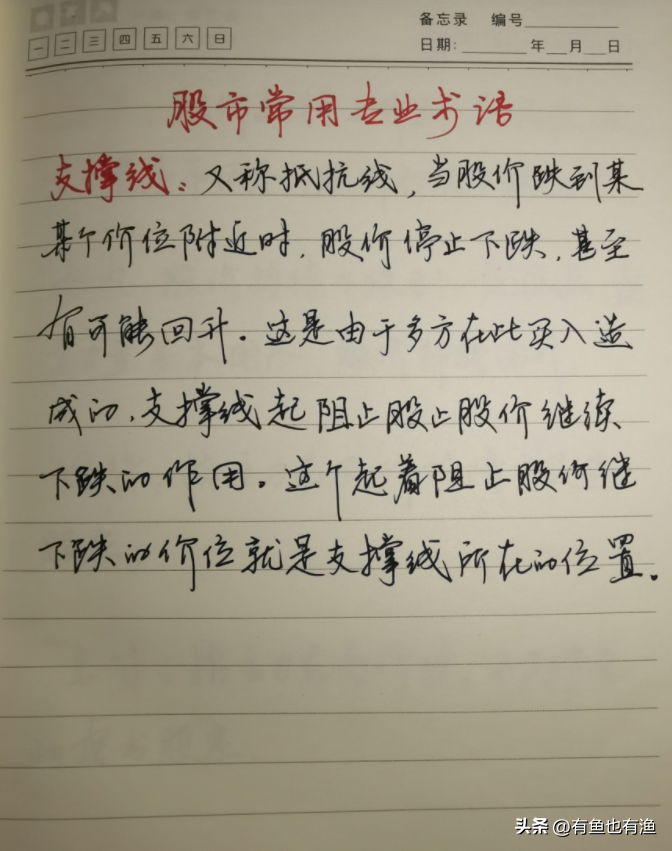 备忘录 编号
一 二 三 四 五 六 日
日期: 年 月 日
股市常用专业术语
支撑线:又称抵抗线,当股价跌到某
某个价位附近时,股价停止下跌,甚至
有可能回升。这是由于多方在此买入造
成的,支撑线起阻止股止股价继续
下跌的作用。这个起着阻止股价继
下跌的价位就是支撑线所在的位置。
头条 @有鱼也有渔